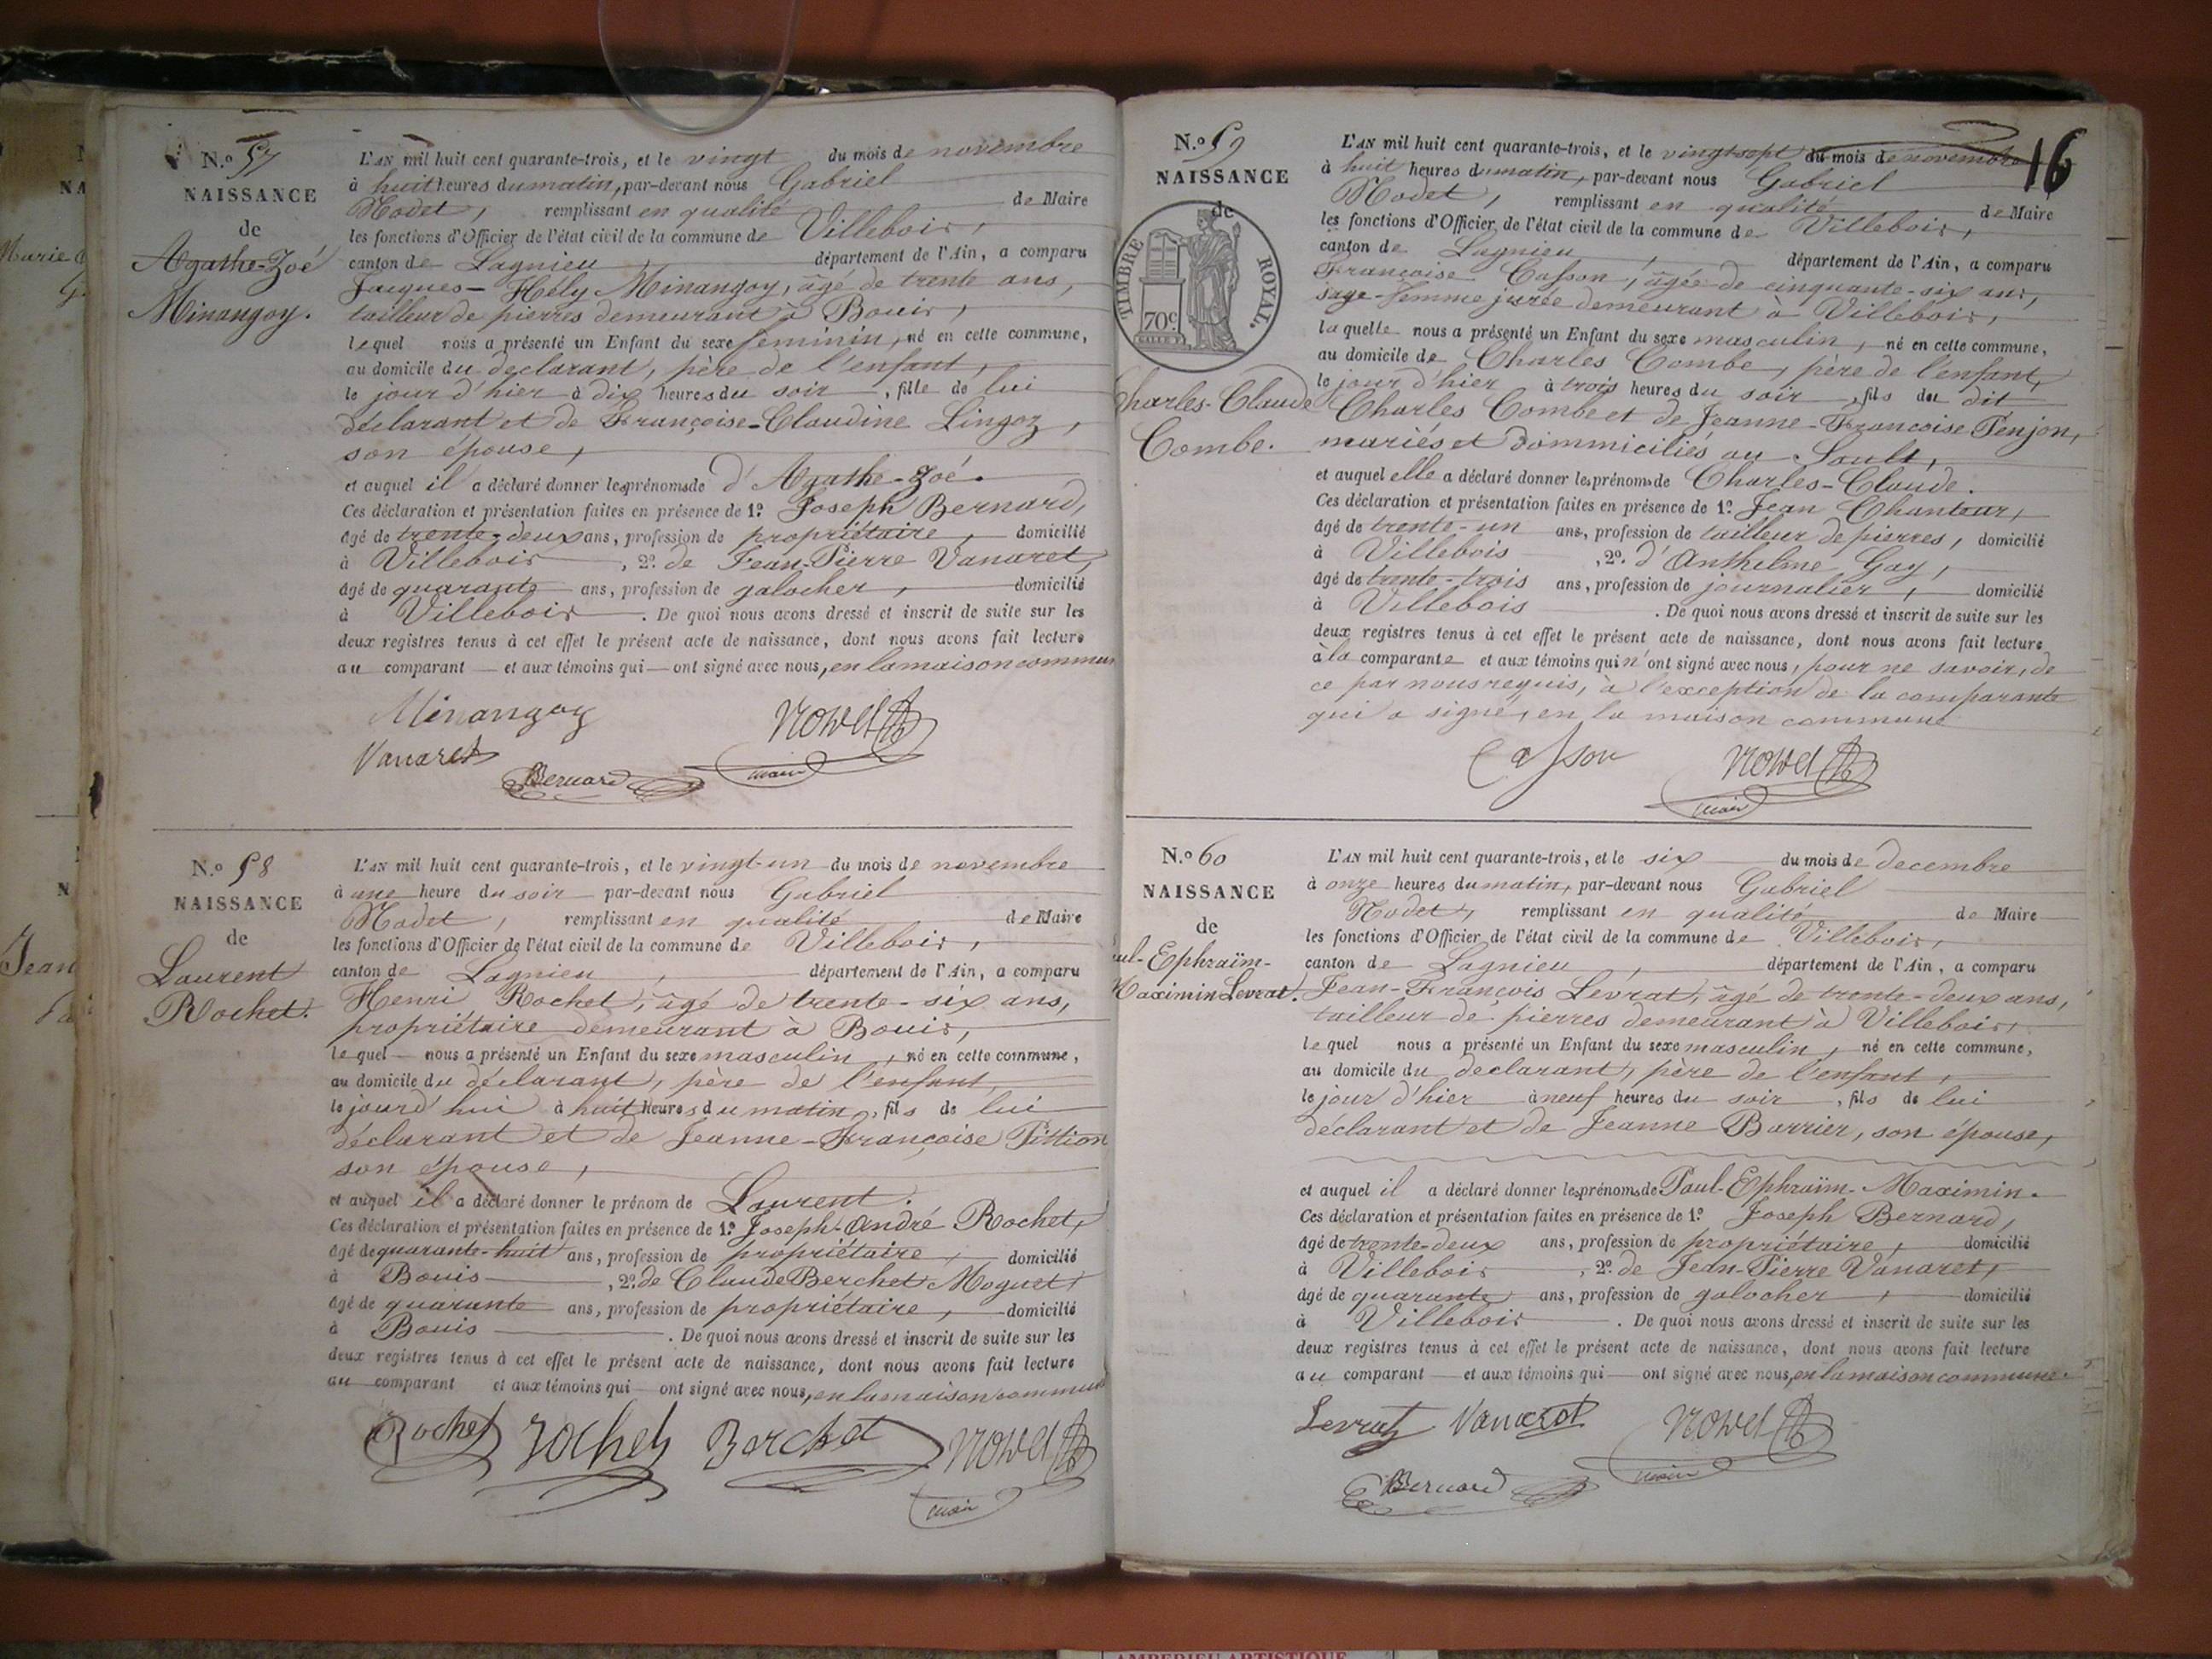 N.o 57
NAISSANCE
de
Agathe-Zoé
Minangoy.
L'AN mil huit cent quarante-trois, et le vingt du mois de novembre
à huit heures du matin, par-devant nous Gabriel
Nodet, remplissant en qualité de Maire
les fonctions d'Officier de l'état civil de la commune de Villebois,
canton de Lagnieu, département de l'Ain, a comparu
Jacques-Hély Minangoy, âgé de trente ans,
tailleur de pierres demeurant à Bouis,
lequel nous a présenté un Enfant du sexe féminin, né en cette commune,
au domicile du déclarant, père de l'enfant,
le jour d'hier à dix heures du soir, fille de lui
déclarant et de Françoise-Claudine Lingoz,
son épouse,
et auquel il a déclaré donner les prénoms de d'Agathe-Zoé.
Ces déclaration et présentation faites en présence de 1.o Joseph Bernard,
âgé de trente-deux ans, profession de propriétaire, domicilié
à Villebois, 2.o de Jean-Pierre Vanaret,
âgé de quarante ans, profession de galocher, domicilié
à Villebois. De quoi nous avons dressé et inscrit de suite sur les
deux registres tenus à cet effet le présent acte de naissance, dont nous avons fait lecture
au comparant et aux témoins qui ont signé avec nous, en la maison commun
Minangoy
Nodet
Vanaret
Bernard
maire
N.o 58
NAISSANCE
de
Laurent
Rochet.
L'AN mil huit cent quarante-trois, et le vingt-un du mois de novembre
à une heure du soir par-devant nous Gabriel
Nodet, remplissant en qualité de Maire
les fonctions d'Officier de l'état civil de la commune de Villebois,
canton de Lagnieu, département de l'Ain, a comparu
Henri Rochet, âgé de trente-six ans,
propriétaire demeurant à Bouis,
lequel nous a présenté un Enfant du sexe masculin, né en cette commune,
au domicile du déclarant, père de l'enfant,
le jourd'hui à huit heures du matin, fils de lui
déclarant et de Jeanne-Françoise Pittion
son épouse,
et auquel il a déclaré donner le prénom de Laurent.
Ces déclaration et présentation faites en présence de 1.o Joseph-André Rochet,
âgé de quarante-huit ans, profession de propriétaire, domicilié
à Bouis, 2.o de Claude Berchet Moguet,
âgé de quarante ans, profession de propriétaire, domicilié
à Bouis. De quoi nous avons dressé et inscrit de suite sur les
deux registres tenus à cet effet le présent acte de naissance, dont nous avons fait lecture
au comparant et aux témoins qui ont signé avec nous, en la maison commune
Rochet Rochet Berchet Nodet
maire
16
N.o 59
NAISSANCE
de
TIMBRE ROYAL.
70c
Charles-Claude
Combe.
L'AN mil huit cent quarante-trois, et le vingt-sept du mois de novembre
à huit heures du matin, par-devant nous Gabriel
Nodet, remplissant en qualité de Maire
les fonctions d'Officier de l'état civil de la commune de Villebois,
canton de Lagnieu, département de l'Ain, a comparu
Françoise Casson, âgée de cinquante-six ans,
sage-femme jurée demeurant à Villebois,
laquelle nous a présenté un Enfant du sexe masculin, né en cette commune,
au domicile de Charles Combe, père de l'enfant,
le jour d'hier à trois heures du soir, fils du dit
Charles Combe et de Jeanne-Françoise Penjon,
mariés et dommiciliés au Sault,
et auquel elle a déclaré donner les prénoms de Charles-Claude.
Ces déclaration et présentation faites en présence de 1.o Jean Chanteur,
âgé de trente-un ans, profession de tailleur de pierres, domicilié
à Villebois, 2.o d'Anthelme Gay,
âgé de trente-trois ans, profession de journalier, domicilié
à Villebois. De quoi nous avons dressé et inscrit de suite sur les
deux registres tenus à cet effet le présent acte de naissance, dont nous avons fait lecture
à la comparante et aux témoins qui n'ont signé avec nous, pour ne savoir, de
ce par nous requis, à l'exception de la comparante
qui a signé, en la maison commune
Casson Nodet
maire
N.o 60
NAISSANCE
de
ul-Ephraïm-
Maximin Levrat.
L'AN mil huit cent quarante-trois, et le six du mois de decembre
à onze heures du matin, par-devant nous Gabriel
Nodet, remplissant en qualité de Maire
les fonctions d'Officier de l'état civil de la commune de Villebois,
canton de Lagnieu, département de l'Ain, a comparu
Jean-François Levrat, âgé de trente-deux ans,
tailleur de pierres demeurant à Villebois,
lequel nous a présenté un Enfant du sexe masculin, né en cette commune,
au domicile du declarant, père de l'enfant,
le jour d'hier à neuf heures du soir, fils de lui
déclarant et de Jeanne Barrier, son épouse,
et auquel il a déclaré donner les prénoms de Paul-Ephraïm-Maximin.
Ces déclaration et présentation faites en présence de 1.o Joseph Bernard,
âgé de trente-deux ans, profession de propriétaire, domicilié
à Villebois, 2.o de Jean-Pierre Vanaret,
âgé de quarante ans, profession de galocher, domicilié
à Villebois. De quoi nous avons dressé et inscrit de suite sur les
deux registres tenus à cet effet le présent acte de naissance, dont nous avons fait lecture
au comparant et aux témoins qui ont signé avec nous, en la maison commune.
Levrat Vanaret Nodet
Bernard
maire